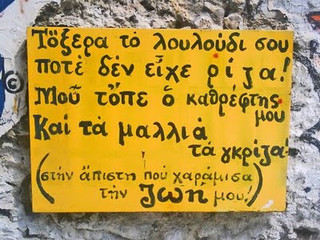 Τὄξερα τὸ λουλούδι σου
ποτὲ δὲν εἶχε ρίζα!
Μοῦ τὄπε ὁ καθρέφτης
μου
Καὶ τὰ μαλλιὰ
τὰ γκρίζα
(στὴν ἄπιστη ποὺ χαράμισα
τὴν Ζωή μου!)
©